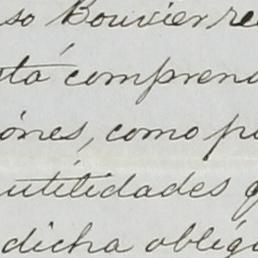 so Bouvier re
tá comprend
iónes, como p
utilidades q
dicha oblig